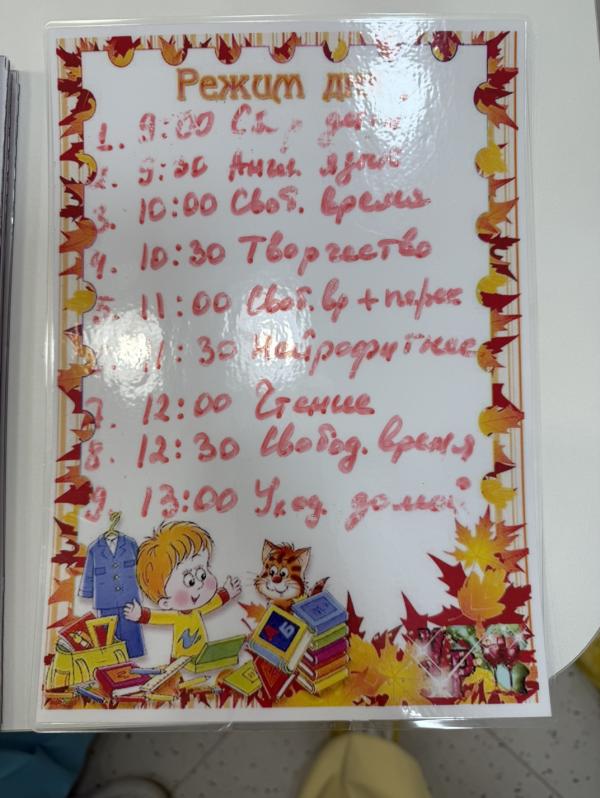 Режим дня
1. 9:00
2. 9:30 Англ. язык
3. 10:00 Своб. время
4. 10:30 Творчество
5. 11:00 Своб. вр + перек
11:30 Нейрофитнес
7. 12:00 Чтение
8. 12:30 Свобод. время
9. 13:00 Уход домой
А Б